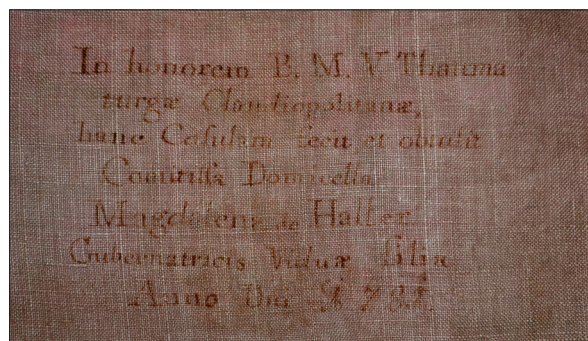 In honorem B. M. V. Thauma
turgæ Claudiopolitanæ,
hanc Casulam fecit et obtulit
Comitissa Domicella
Magdalena de Haller
Gubernatricis Viduæ filia
Anno Dni